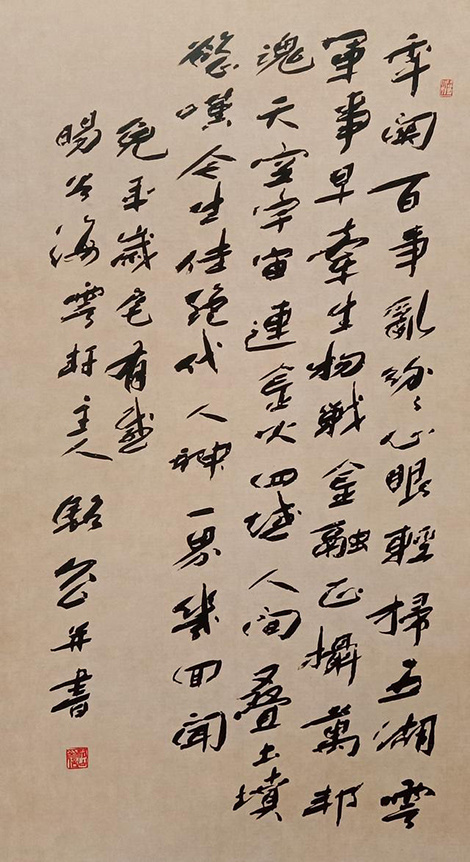 百事亂紛〻心眼輕掃五湖雲
軍事早牽生物戰金融正攝萬邦
魂天空宇宙連金火四域人間疊土墳
嘆今生佳絕代人神一界幾回聞
兔年歲宅有感
暘谷海雲軒主人并書